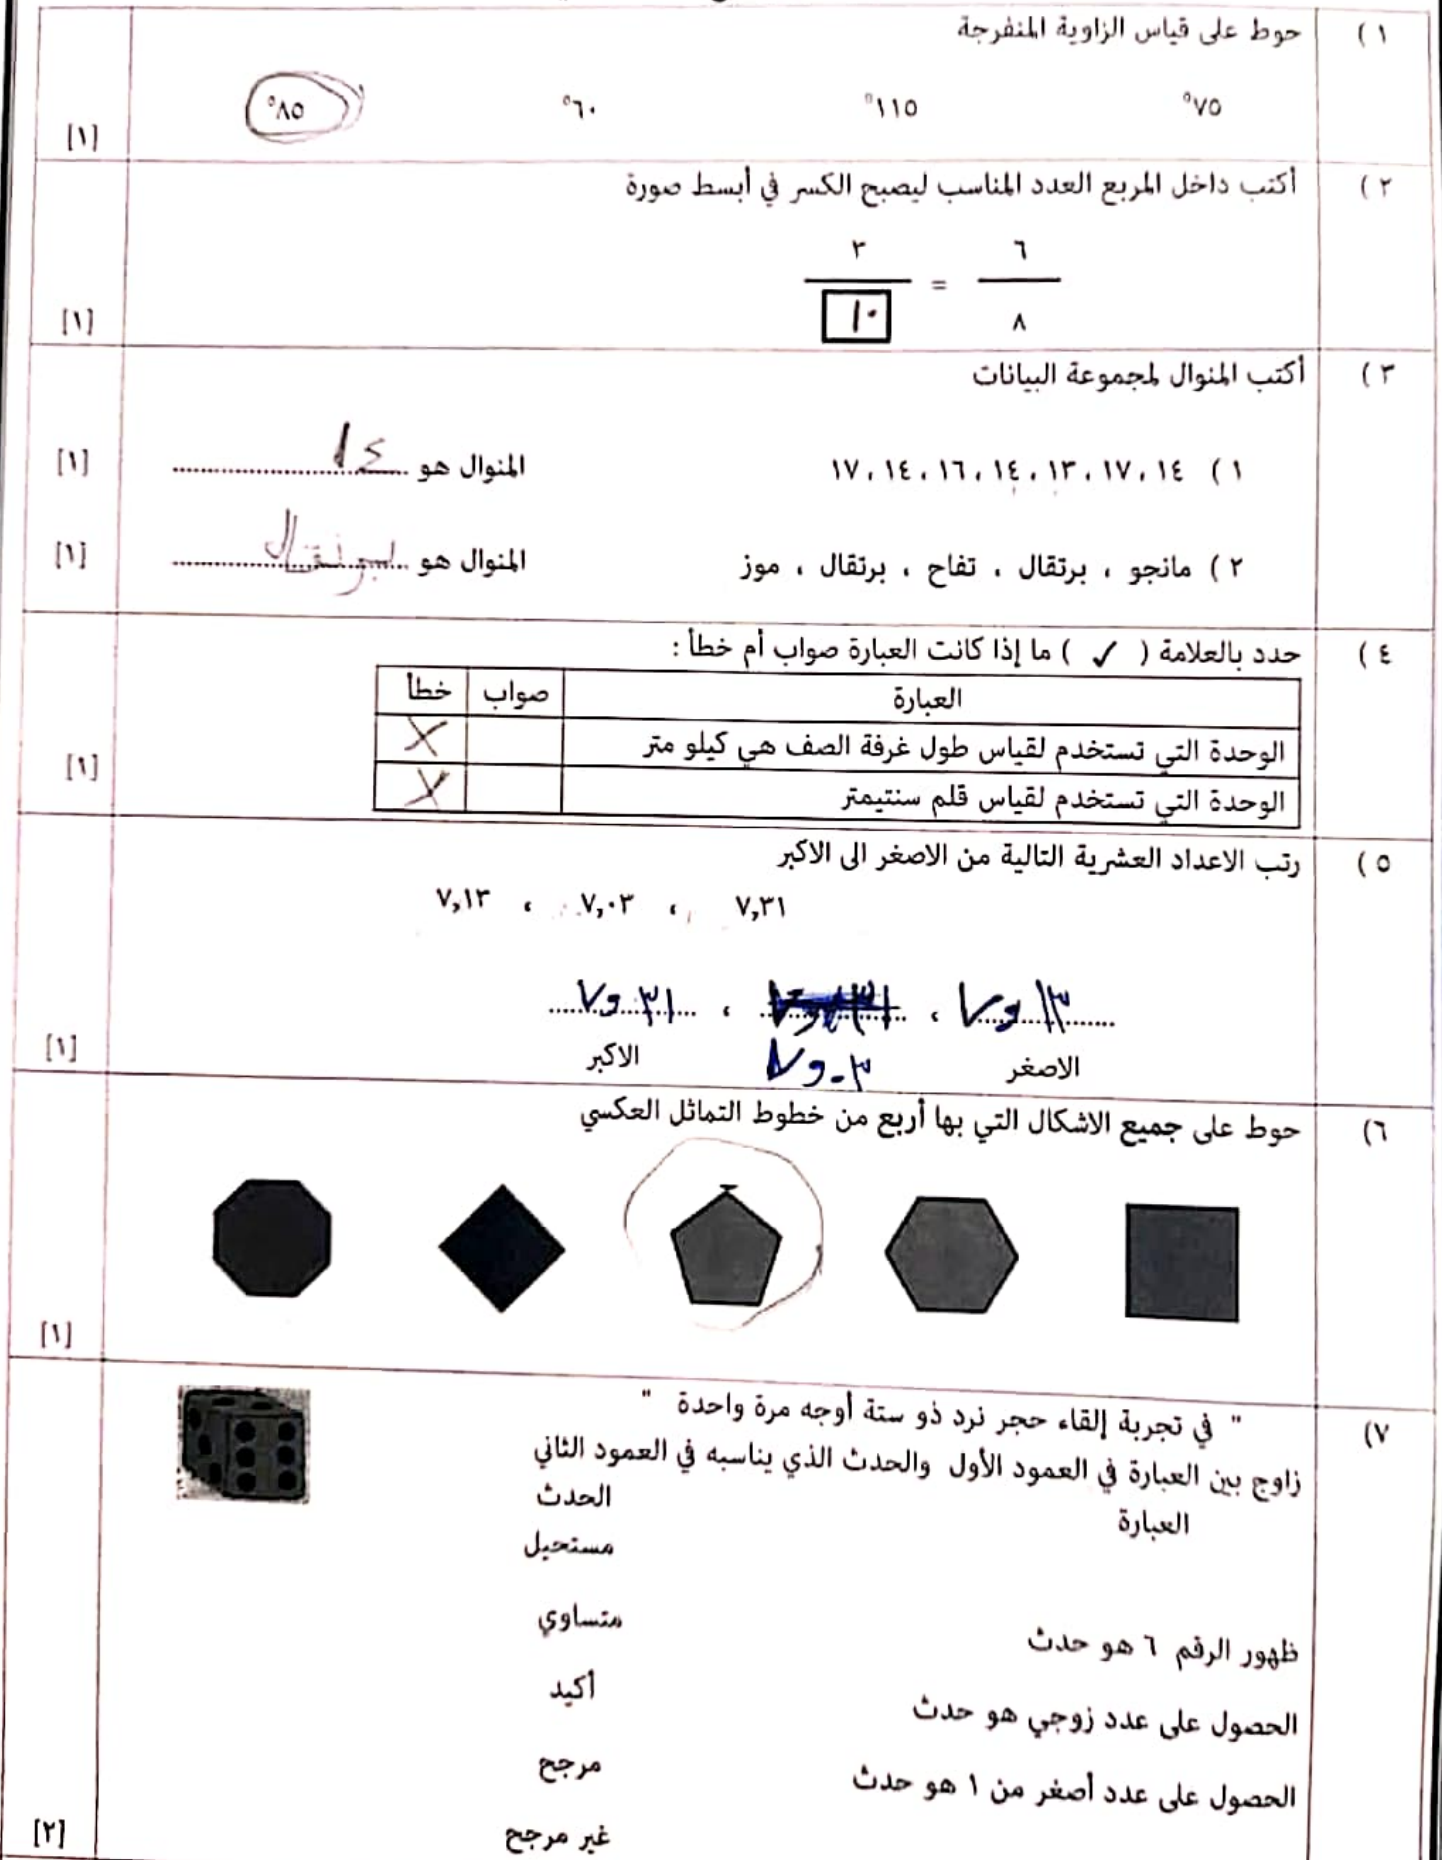 ١ ) حوط على قياس الزاوية المنفرجة
٧٥° ١١٥° ٦٠° ٨٥°
[١]
٢ ) أكتب داخل المربع العدد المناسب ليصبح الكسر في أبسط صورة
٦ ٣
=
٨ ١٠
[١]
٣ ) أكتب المنوال لمجموعة البيانات
١ ) ١٤ ، ١٧ ، ١٣ ، ١٤ ، ١٦ ، ١٤ ، ١٧ المنوال هو ١٤ [١]
٢ ) مانجو ، برتقال ، تفاح ، برتقال ، موز المنوال هو برتقال [١]
٤ ) حدد بالعلامة ( ✓ ) ما إذا كانت العبارة صواب أم خطأ :
العبارة صواب خطأ
الوحدة التي تستخدم لقياس طول غرفة الصف هي كيلو متر X
[١]
الوحدة التي تستخدم لقياس قلم سنتيمتر X
٥ ) رتب الاعداد العشرية التالية من الاصغر الى الاكبر
٧,٣١ ، ٧,٠٣ ، ٧,١٣
٧و١٣ ، ، ٧و٣١
الاصغر ٧و٠٣ الاكبر
[١]
٦) حوط على جميع الاشكال التي بها أربع من خطوط التماثل العكسي
[١]
٧) " في تجربة إلقاء حجر نرد ذو ستة أوجه مرة واحدة "
زاوج بين العبارة في العمود الأول والحدث الذي يناسبه في العمود الثاني
العبارة الحدث
مستحيل
ظهور الرقم ٦ هو حدث متساوي
الحصول على عدد زوجي هو حدث أكيد
الحصول على عدد أصغر من ١ هو حدث مرجح
غير مرجح
[٢]